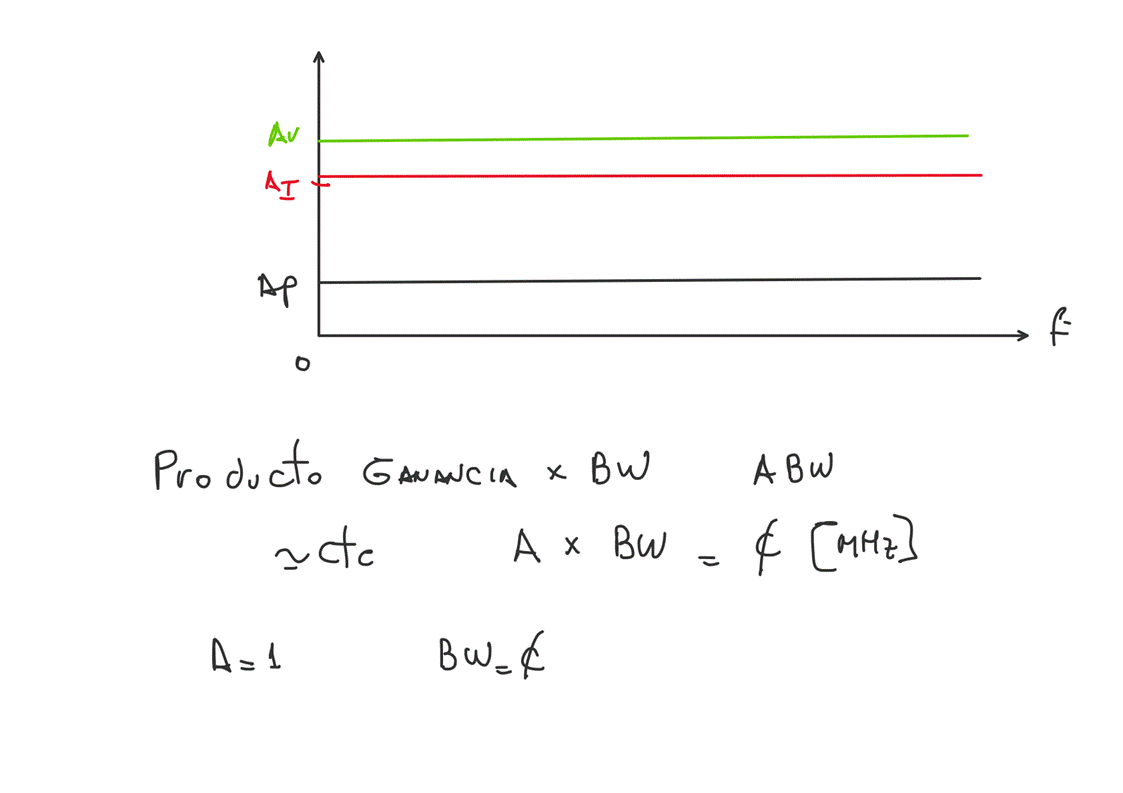 Av
A_I
Ap
f
0
Producto GANANCIA x BW ABW
≃ cte A x BW = ₵ [MHz]
A = 1 BW = ₵